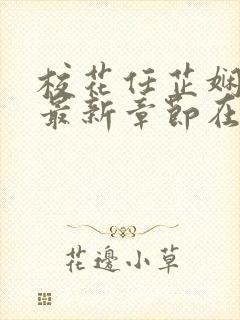 校花任芷娴
最新章节在
花邊小草